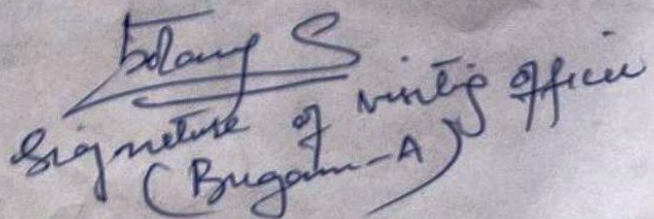 S
Signature of visiting officer
(Bugam-A)